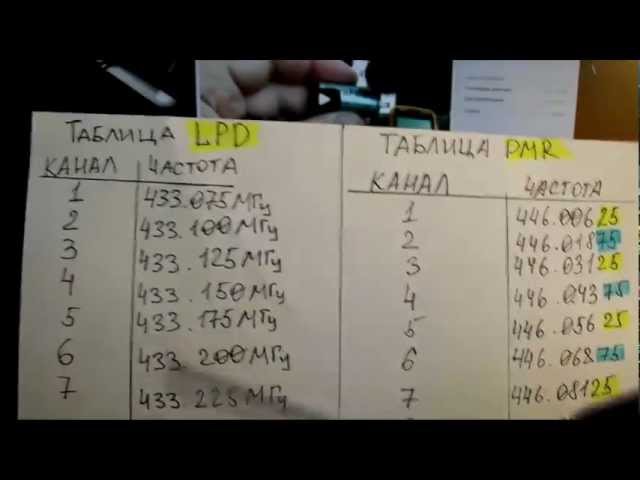 ТАБЛИЦА LPD
КАНАЛ ЧАСТОТА
1 433.075 МГц
2 433.100 МГц
3 433.125 МГц
4 433.150 МГц
5 433.175 МГц
6 433.200 МГц
7 433.225 МГц
ТАБЛИЦА PMR
КАНАЛ ЧАСТОТА
1 446.00625
2 446.01875
3 446.03125
4 446.04375
5 446.05625
6 446.06875
7 446.08125